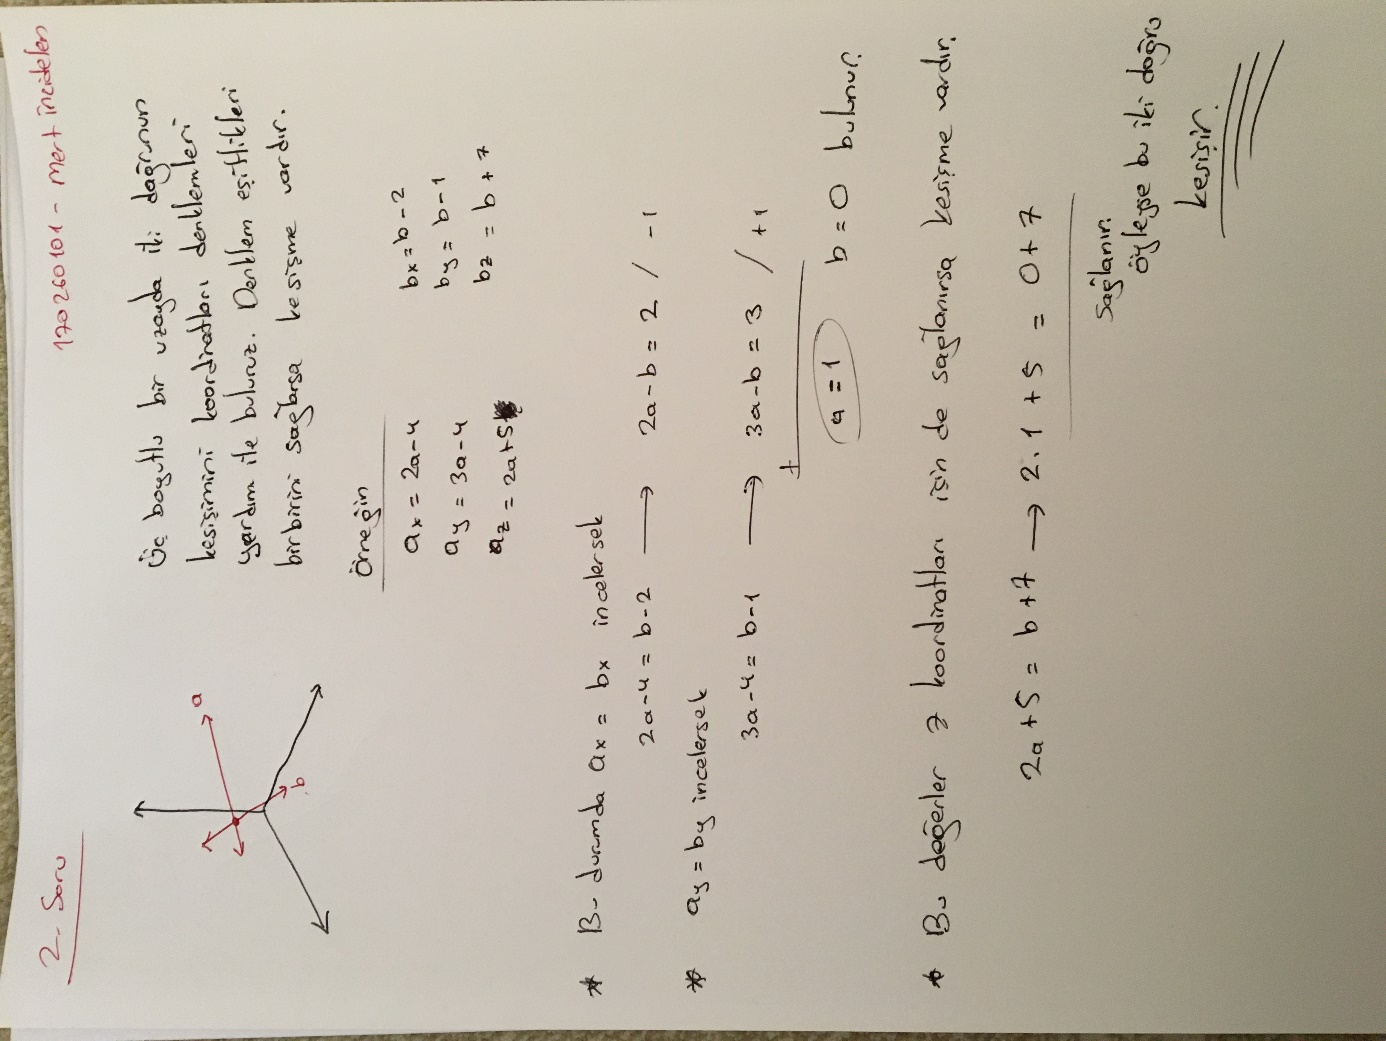 170260101 - Mert İncidelen
2- Soru
Üç boyutlu bir uzayda iki doğrunun
kesişimini koordinatları denklemleri
yardımı ile buluruz. Denklem eşitlikleri
birbirini sağlarsa kesişme vardır.
a
b
Örneğin
ax = 2a-4 bx = b-2
ay = 3a-4 by = b-1
az = 2a+5 bz = b+7
* Bu durumda ax = bx incelersek
2a-4 = b-2 → 2a-b = 2 / -1
* ay = by incelersek
3a-4 = b-1 → 3a-b = 3 / +1
+
a = 1 b = 0 bulunur.
* Bu değerler z koordinatları için de sağlanırsa kesişme vardır.
2a+5 = b+7 → 2.1 + 5 = 0+7
Sağlanır.
öyleyse bu iki doğru
kesişir.